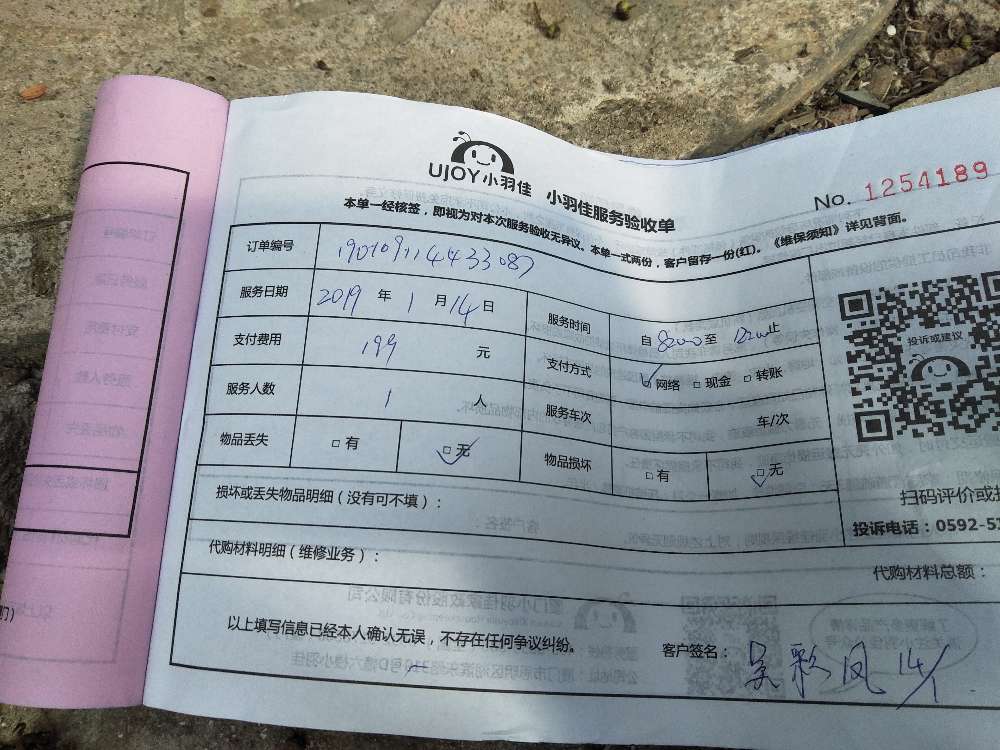 UJOY小羽佳 小羽佳服务验收单
No. 1254189
本单一经核签，即视为对本次服务验收无异议。本单一式两份，客户留存一份(红)。《维保须知》详见背面。
订单编号 190109114433087
服务日期 2019 年 1 月 14 日 服务时间 自 8:00 至 12:00 止
支付费用 199 元 支付方式 □网络 □现金 □转账
服务人数 1 人 服务车次 车/次
物品丢失 □有 □无 物品损坏 □有 □无
投诉或建议
扫码评价或投
投诉电话：0592-5
损坏或丢失物品明细（没有可不填）：
代购材料明细（维修业务）：
代购材料总额：
以上填写信息已经本人确认无误，不存在任何争议纠纷。
客户签名： 吴彩凤 14/1